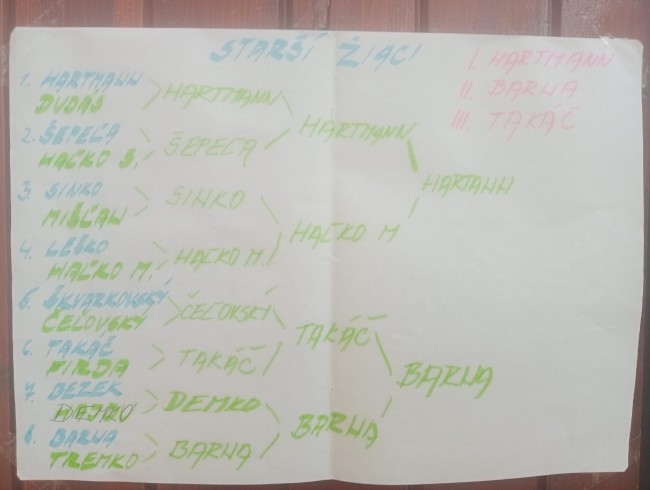 STARŠÍ ŽIACI
I. HARTMANN
II. BARNA
III. TAKÁČ
1. HARTMANN
DUDÁŠ
2. ŠEPEĽA
HAĽKO S.
3. SINKO
MIŠĽAN
4. LEŠKO
HAĽKO M.
5. ŠKVARKOVSKÝ
ČEĽOVSKÝ
6. TAKÁČ
FIRDA
7. BEZEK
8. BARNA
TREMKO
HARTMANN
ŠEPEĽA
SINKO
HAĽKO M.
ČEĽOVSKÍ
TAKÁČ
DEMKO
BARNA
HARTMANN
HAĽKO M
TAKÁČ
BARNA
HARTANN
BARNA